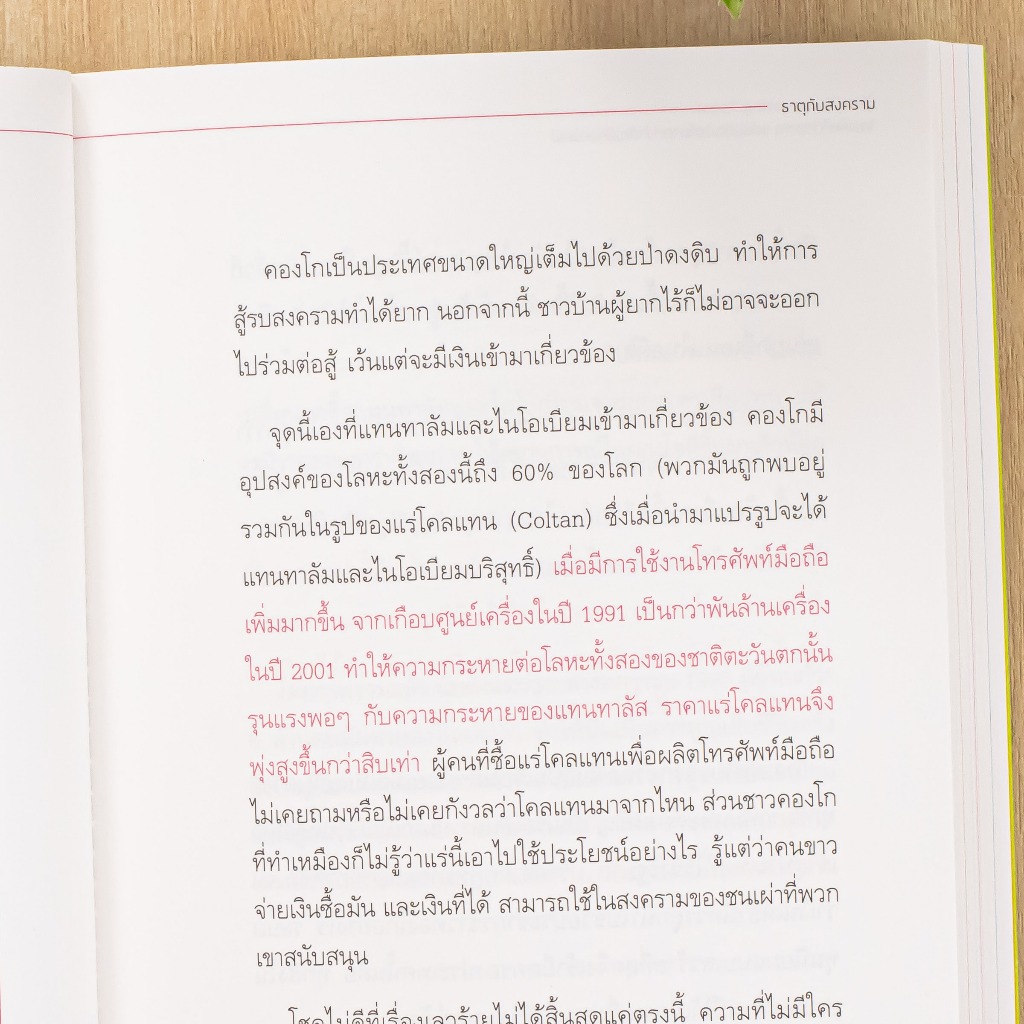 ธาตุกับสงคราม
คองโกเป็นประเทศขนาดใหญ่เต็มไปด้วยป่าดงดิบ ทำให้การ
สู้รบสงครามทำได้ยาก นอกจากนี้ ชาวบ้านผู้ยากไร้ก็ไม่อาจจะออก
ไปร่วมต่อสู้ เว้นแต่จะมีเงินเข้ามาเกี่ยวข้อง
จุดนี้เองที่แทนทาลัมและไนโอเบียมเข้ามาเกี่ยวข้อง คองโกมี
อุปสงค์ของโลหะทั้งสองนี้ถึง 60% ของโลก (พวกมันถูกพบอยู่
รวมกันในรูปของแร่โคลแทน (Coltan) ซึ่งเมื่อนำมาแปรรูปจะได้
แทนทาลัมและไนโอเบียมบริสุทธิ์) เมื่อมีการใช้งานโทรศัพท์มือถือ
เพิ่มมากขึ้น จากเกือบศูนย์เครื่องในปี 1991 เป็นกว่าพันล้านเครื่อง
ในปี 2001 ทำให้ความกระหายต่อโลหะทั้งสองของชาติตะวันตกนั้น
รุนแรงพอๆ กับความกระหายของแทนทาลัส ราคาแร่โคลแทนจึง
พุ่งสูงขึ้นกว่าสิบเท่า ผู้คนที่ซื้อแร่โคลแทนเพื่อผลิตโทรศัพท์มือถือ
ไม่เคยถามหรือไม่เคยกังวลว่าโคลแทนมาจากไหน ส่วนชาวคองโก
ที่ทำเหมืองก็ไม่รู้ว่าแร่นี้เอาไปใช้ประโยชน์อย่างไร รู้แต่ว่าคนขาว
จ่ายเงินซื้อมัน และเงินที่ได้ สามารถใช้ในสงครามของชนเผ่าที่พวก
เขาสนับสนุน
โชคไม่ดีที่เรื่องเลวร้ายไม่ได้สิ้นสุดแค่ตรงนี้ ความที่ไม่มีใคร